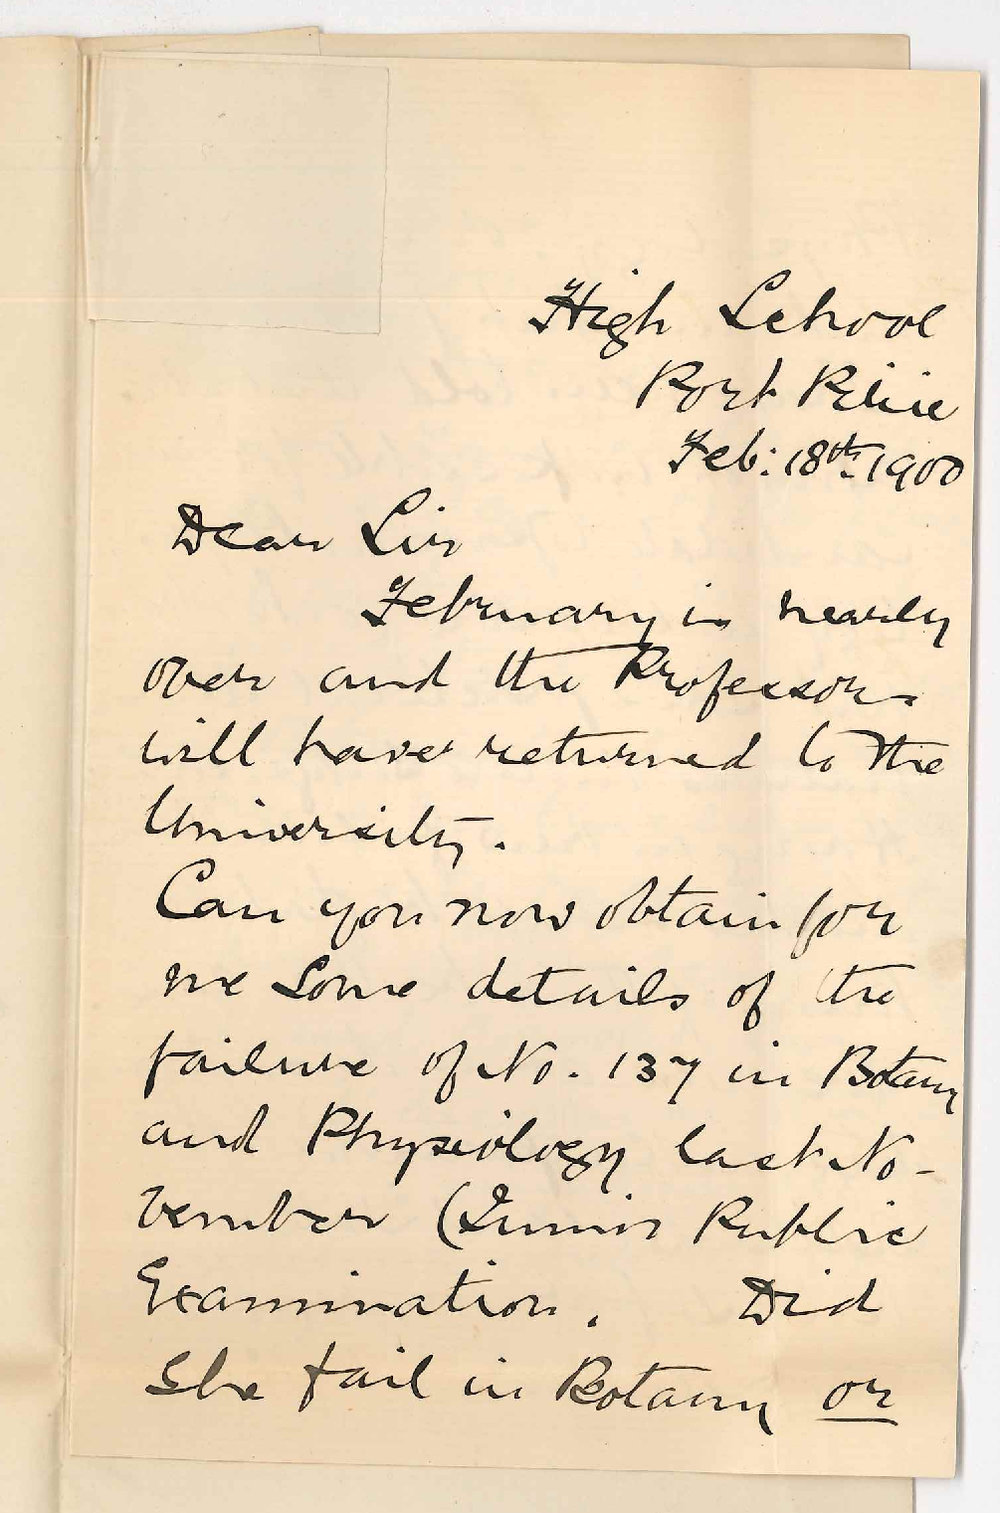 High School
Port Pirie
Feb: 18th. 1900
Dear Sir
February is nearly
over and the Professors
will have returned to the
University.
Can you now obtain for
me some details of the
failure of No. 137 in Botany
and Physiology last No-
vember (Junior Public
Examination. Did
she fail in Botany or